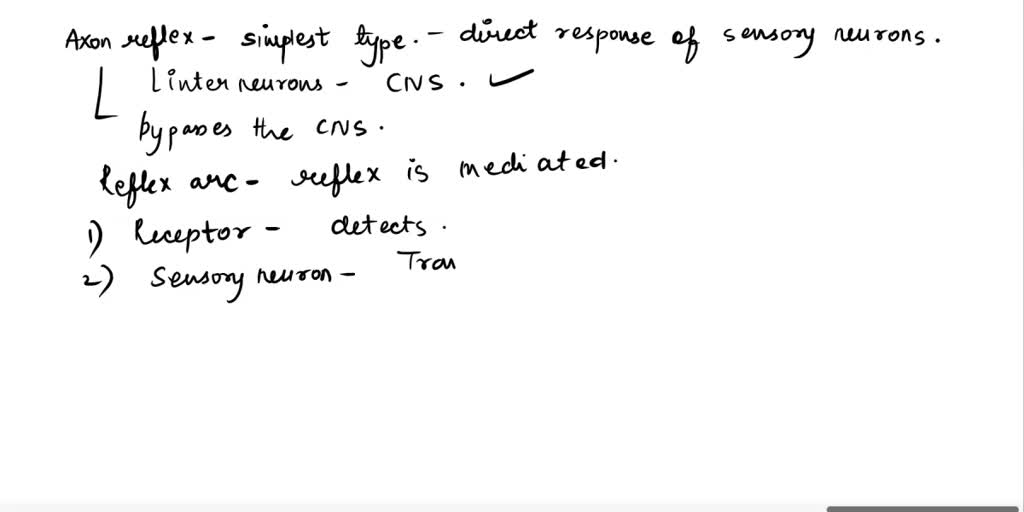 Axon reflex - simplest type. - direct response of sensory neurons.
Interneurons - CNS.
bypasses the CNS.
Reflex arc - reflex is mediated.
1) Receptor - detects.
2) Sensory neuron - Tran